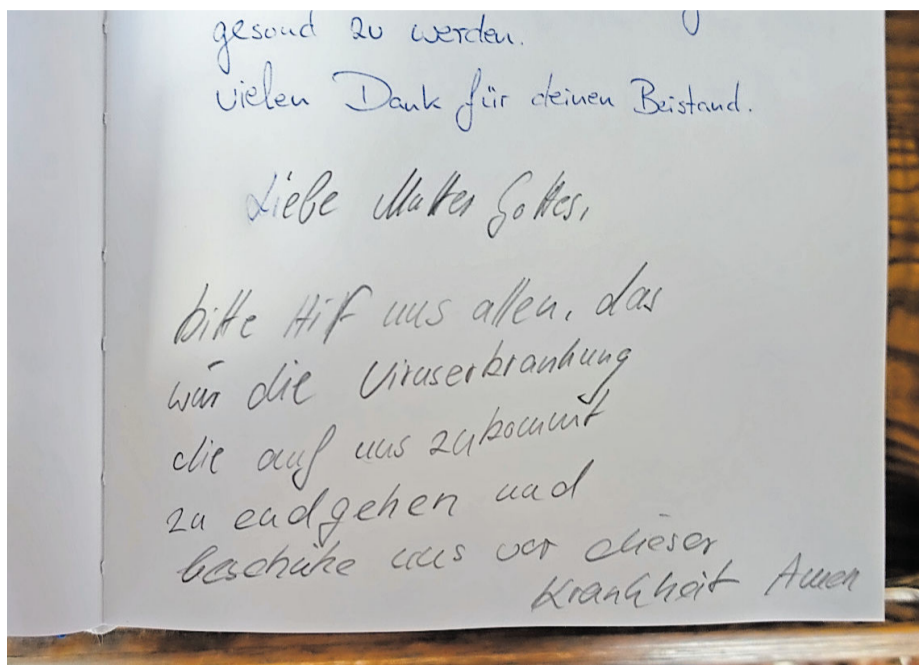 gesund zu werden.
vielen Dank für deinen Beistand.
Liebe Mutter Gottes,
bitte Hilf uns allen, das
wir die Viruserkrankung
die auf uns zukommt
zu endgehen und
beschütze uns vor dieser
Krankheit Amen